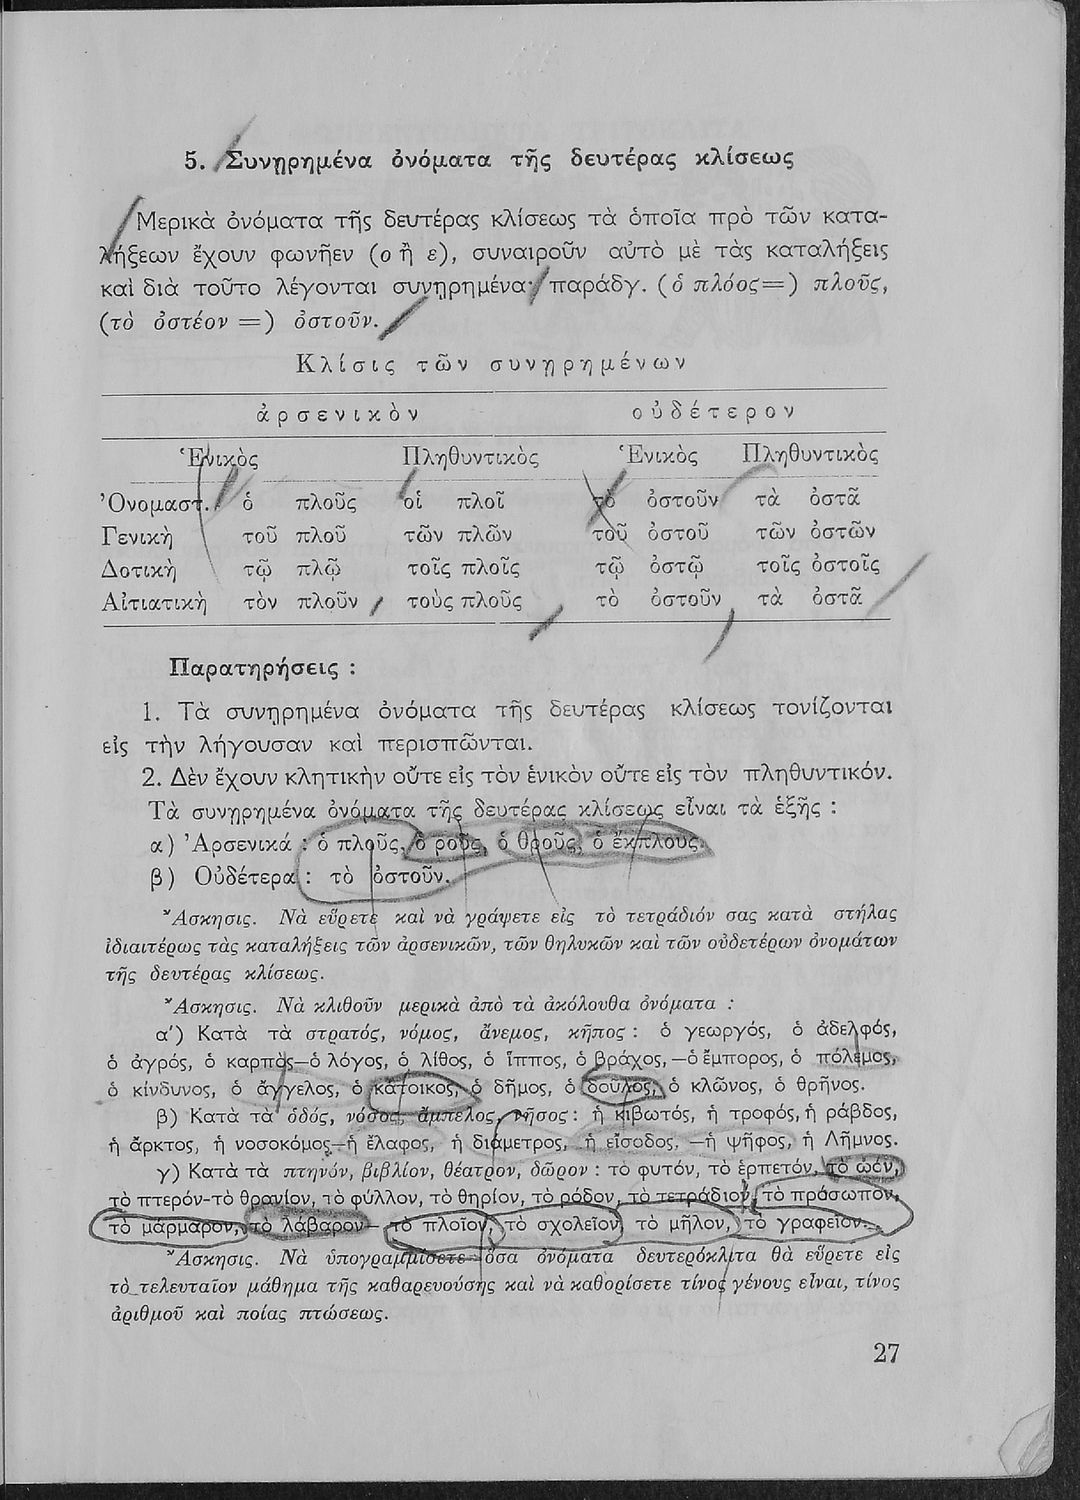 5. Συνῃρημένα ὀνόματα τῆς δευτέρας κλίσεως
Μερικὰ ὀνόματα τῆς δευτέρας κλίσεως τὰ ὁποῖα πρὸ τῶν κατα-
λήξεων ἔχουν φωνῆεν (ο ἢ ε), συναιροῦν αὐτὸ μὲ τὰς καταλήξεις
καὶ διὰ τοῦτο λέγονται συνῃρημένα· παράδγ. (ὁ πλόος=) πλοῦς,
(τὸ ὀστέον =) ὀστοῦν.
Κλίσις τῶν συνῃρημένων
ἀρσενικὸν οὐδέτερον
Ἑνικὸς Πληθυντικὸς Ἑνικὸς Πληθυντικὸς
Ὀνομαστ. ὁ πλοῦς οἱ πλοῖ τὸ ὀστοῦν τὰ ὀστᾶ
Γενικὴ τοῦ πλοῦ τῶν πλῶν τοῦ ὀστοῦ τῶν ὀστῶν
Δοτικὴ τῷ πλῷ τοῖς πλοῖς τῷ ὀστῷ τοῖς ὀστοῖς
Αἰτιατικὴ τὸν πλοῦν τοὺς πλοῦς τὸ ὀστοῦν τὰ ὀστᾶ
Παρατηρήσεις :
1. Τὰ συνῃρημένα ὀνόματα τῆς δευτέρας κλίσεως τονίζονται
εἰς τὴν λήγουσαν καὶ περισπῶνται.
2. Δὲν ἔχουν κλητικὴν οὔτε εἰς τὸν ἑνικὸν οὔτε εἰς τὸν πληθυντικόν.
Τὰ συνῃρημένα ὀνόματα τῆς δευτέρας κλίσεως εἶναι τὰ ἑξῆς :
α) Ἀρσενικά : ὁ πλοῦς, ὁ ροῦς, ὁ θροῦς, ὁ ἔκπλους.
β) Οὐδέτερα : τὸ ὀστοῦν.
Ἄσκησις. Νὰ εὕρετε καὶ νὰ γράψετε εἰς τὸ τετράδιόν σας κατὰ στήλας
ἰδιαιτέρως τὰς καταλήξεις τῶν ἀρσενικῶν, τῶν θηλυκῶν καὶ τῶν οὐδετέρων ὀνομάτων
τῆς δευτέρας κλίσεως.
Ἄσκησις. Νὰ κλιθοῦν μερικὰ ἀπὸ τὰ ἀκόλουθα ὀνόματα :
α′) Κατὰ τὰ στρατός, νόμος, ἄνεμος, κῆπος : ὁ γεωργός, ὁ ἀδελφός,
ὁ ἀγρός, ὁ καρπὸς–ὁ λόγος, ὁ λίθος, ὁ ἵππος, ὁ βράχος, –ὁ ἔμπορος, ὁ πόλεμος,
ὁ κίνδυνος, ὁ ἄγγελος, ὁ κάτοικος, ὁ δῆμος, ὁ δοῦλος, ὁ κλῶνος, ὁ θρῆνος.
β) Κατὰ τὰ ὁδός, νόσος, ἄμπελος, νῆσος : ἡ κιβωτός, ἡ τροφός, ἡ ράβδος,
ἡ ἄρκτος, ἡ νοσοκόμος,–ἡ ἔλαφος, ἡ διάμετρος, ἡ εἴσοδος, –ἡ ψῆφος, ἡ Λῆμνος.
γ) Κατὰ τὰ πτηνόν, βιβλίον, θέατρον, δῶρον : τὸ φυτόν, τὸ ἑρπετόν, τὸ ὠόν,
τὸ πτερόν-τὸ θρανίον, τὸ φύλλον, τὸ θηρίον, τὸ ρόδον, τὸ τετράδιον, τὸ πρόσωπον,
τὸ μάρμαρον, τὸ λάβαρον– τὸ πλοῖον, τὸ σχολεῖον, τὸ μῆλον, τὸ γραφεῖον.
Ἄσκησις. Νὰ ὑπογραμμίσετε ὅσα ὀνόματα δευτερόκλιτα θὰ εὕρετε εἰς
τὸ τελευταῖον μάθημα τῆς καθαρευούσης καὶ νὰ καθορίσετε τίνος γένους εἶναι, τίνος
ἀριθμοῦ καὶ ποίας πτώσεως.
27